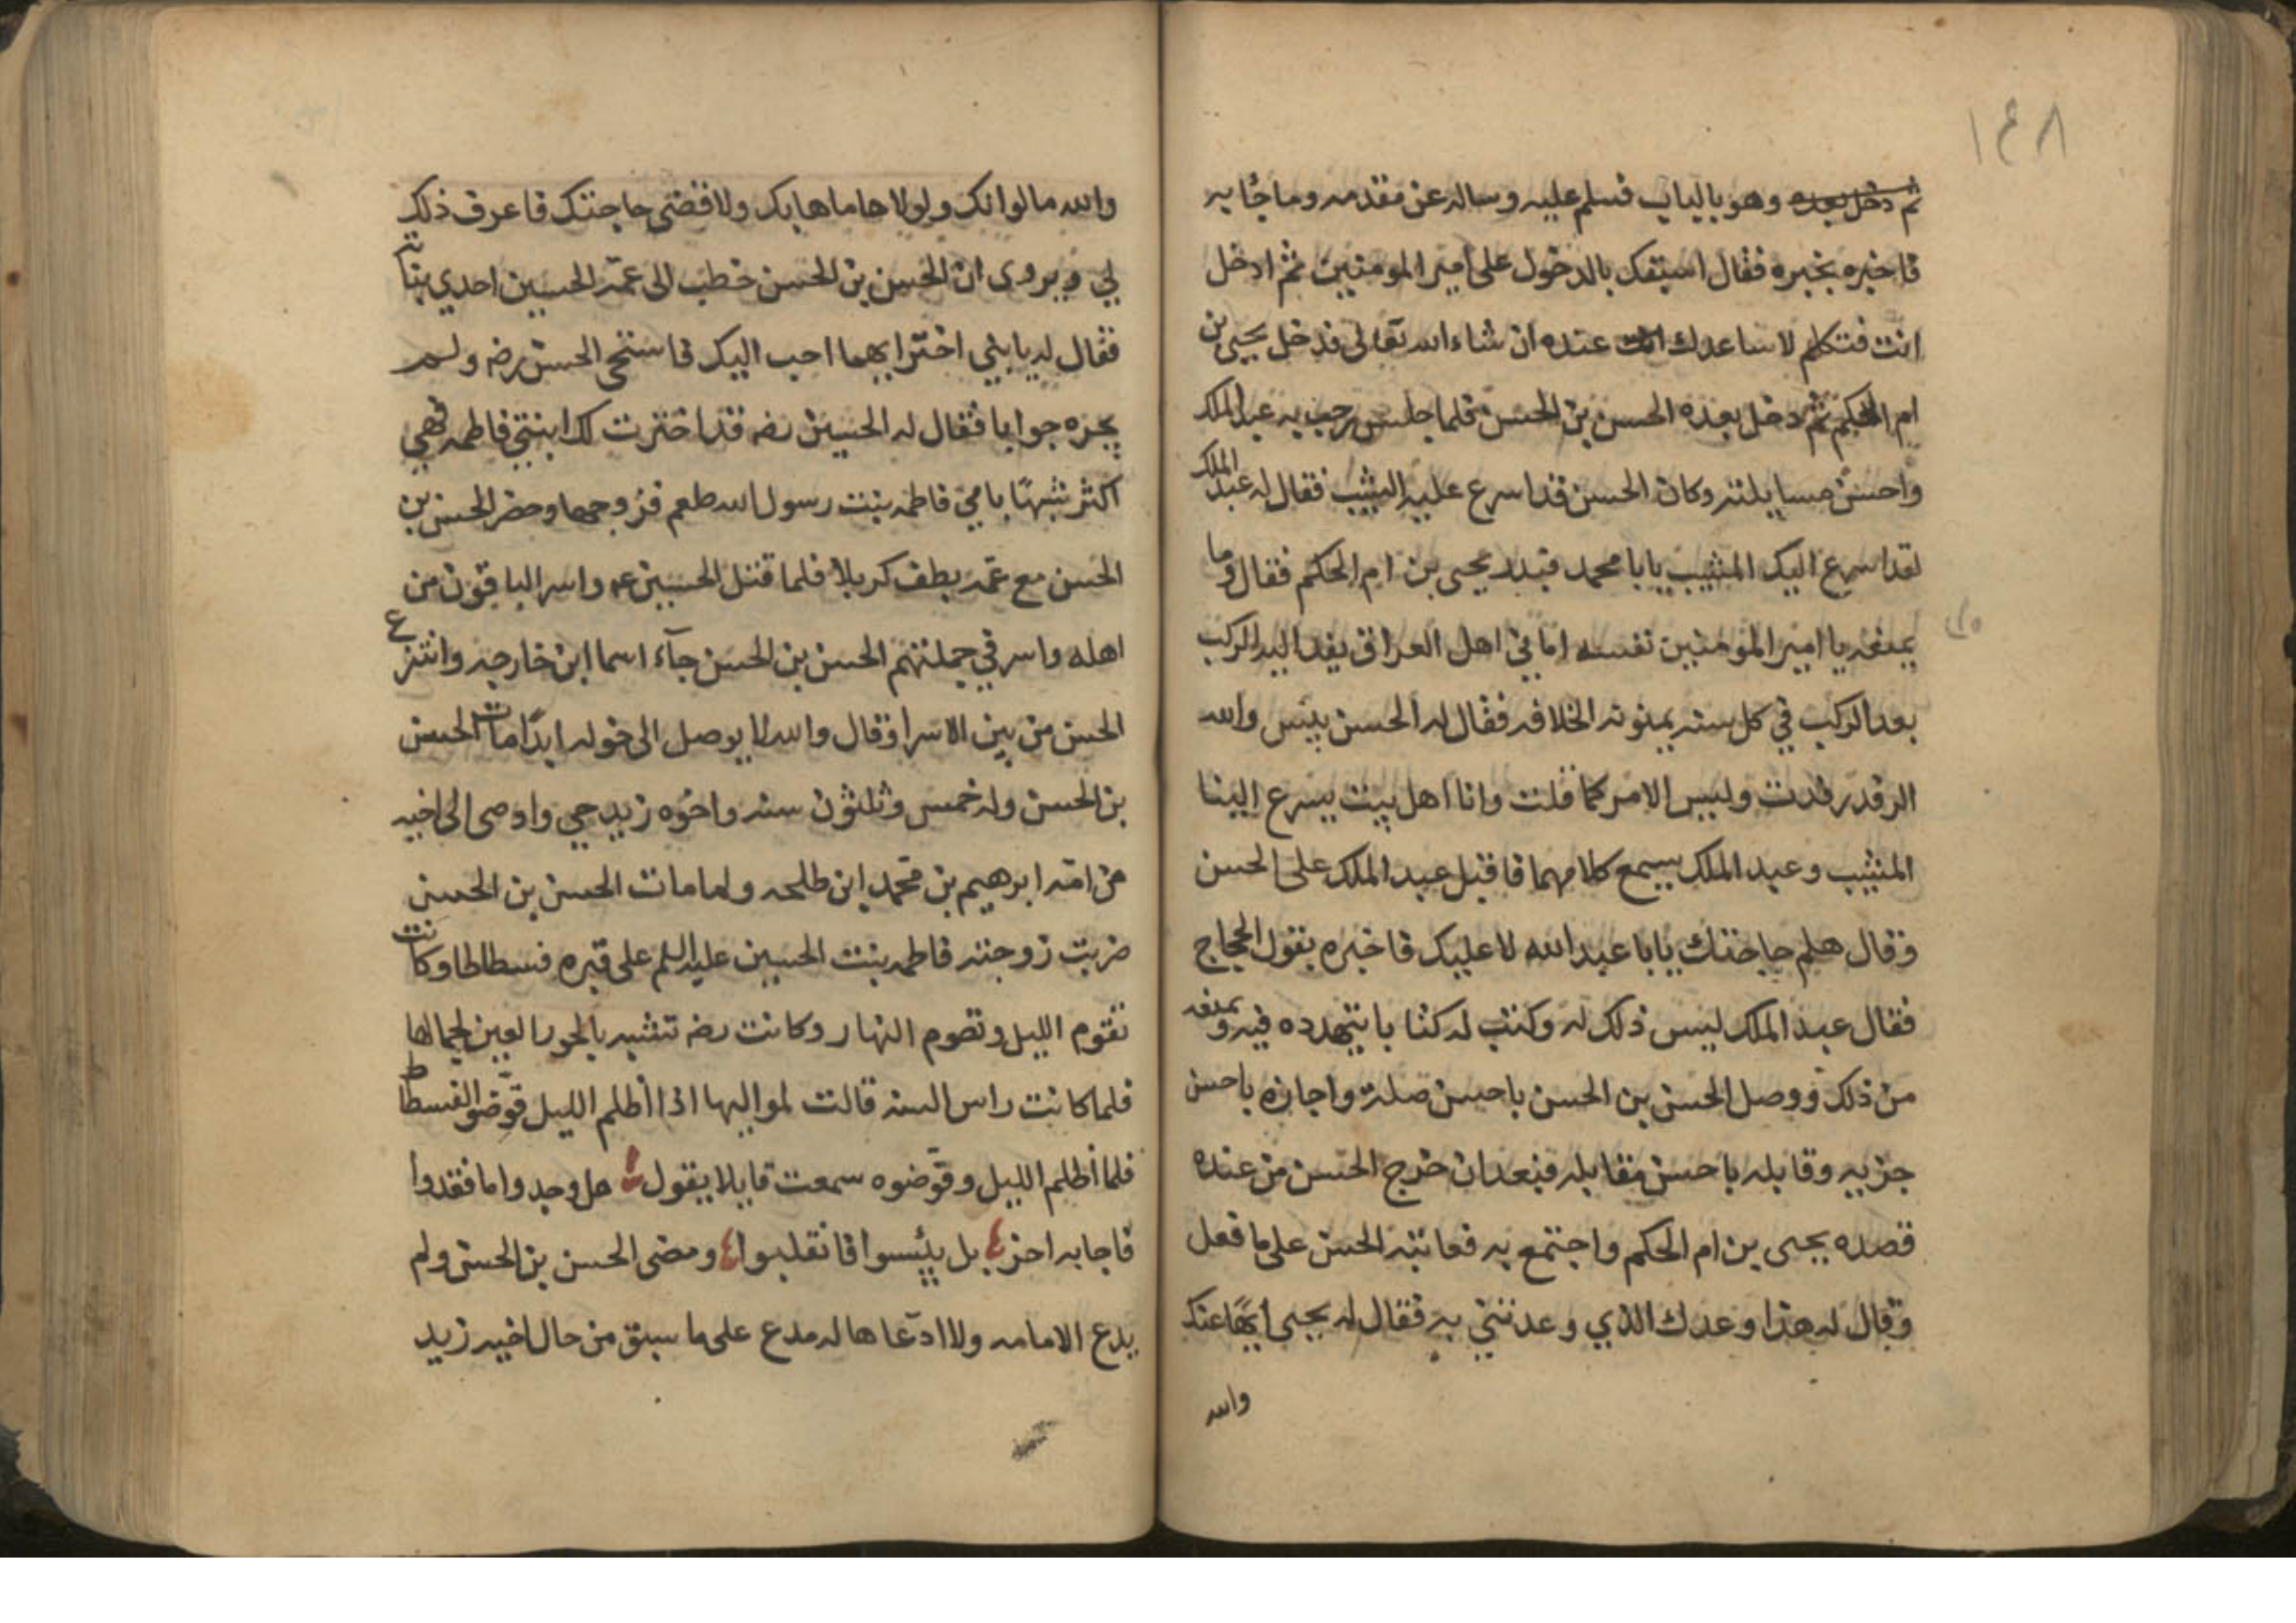 ١٤٨
ثم دخل بعده وهو بالباب فسلم عليه وساله عن مقدمه وما جُا به
فاخبره بخبره فقال اسبقك بالدخول على امير المومنين ثم ادخل
انت فتكلم لاساعدك عنده ان شاء الله تعالى فدخل يحيى بن
ام الحكم ثم دخل بعده الحسن بن الحسن فلما جلس رحب به عبد الملك
واحسن مسايلته وكان الحسن قد اسرع عليه الشيب فقال له عبد الملك
لقد اسرع اليك المشيب يابا محمد فبدر يحيى بن ام الحكم فقال وما
يمنعه يا امير المومنين نفسه اماني اهل العراق يفد اليه الركب
بعد الركب في كل سنه يمنونه الخلافه فقال له الحسن بيس والله
الرفد رفدت وليس الامر كما قلت وانا اهل بيت يسرع الينا
المشيب وعبد الملك يسمع كلامهما فاقبل عبد الملك على الحسن
وقال هلم حاجتك يابا عبد الله لا عليك فاخبره بقول الحجاج
فقال عبد الملك ليس ذلك له وكتب له كتابا يتهدده فيه ويمنعه
من ذلك ووصل الحسن بن الحسن باحسن صله واجازه باحسن
جزييه وقابله باحسن مقابله فبعد ان خرج الحسن من عنده
قصده يحيى بن ام الحكم واجتمع به فعاتبه الحسن على ما فعل
وقال له هذا وعدك الذي وعدتني به فقال له يحيى ايهًا عنك
والله
والله ما لوانك ولولا ها ما هابك ولا قضى حاجتك فاعرف ذلك
لي ويروى ان الحسن بن الحسن خطب الى عمّه الحسين احدي بناته
فقال له يا بني اختر ايهما احب اليك فاستحى الحسن رضه ولم
يجزه جوابا فقال له الحسين رضه قد اخترت لك ابنتي فاطمه فهي
اكثر شبهًا بامي فاطمه بنت رسول الله صلعم فزوجها وحضر الحسن بن
الحسن مع عمّه بطف كربلا فلما قتل الحسين عم واسر الباقون من
اهله واسر في جملتهم الحسن بن الحسن جآء اسما ابن خارجه وانتزع
الحسن من بين الاسرا وقال والله لا يوصل الى خوله ابدًا مات الحسن
بن الحسن وله خمس وثلثون سنه واخوه زيد حي واوصى الى اخيه
من امّه ابرهيم بن محمّد ابن طلحه ولما مات الحسن بن الحسن
ضربت زوجته فاطمه بنت الحسين عليه السلم على قبره فسطاطا وكانت
تقوم الليل وتصوم النهار وكانت رضه تشبه بالحور العين لجمالها
فلما كانت راس السنه قالت لمواليها اذا اظلم الليل قوّضو الفسطاط
فلما اظلم الليل وقوّضوه سمعت قايلا يقول هل وجدوا ما فقدوا
فاجابه اخر بل يئسوا فانقلبوا ومضى الحسن بن الحسن ولم
يدع الامامه ولا ادّعاها له مدع على ما سبق من حال اخيه زيد